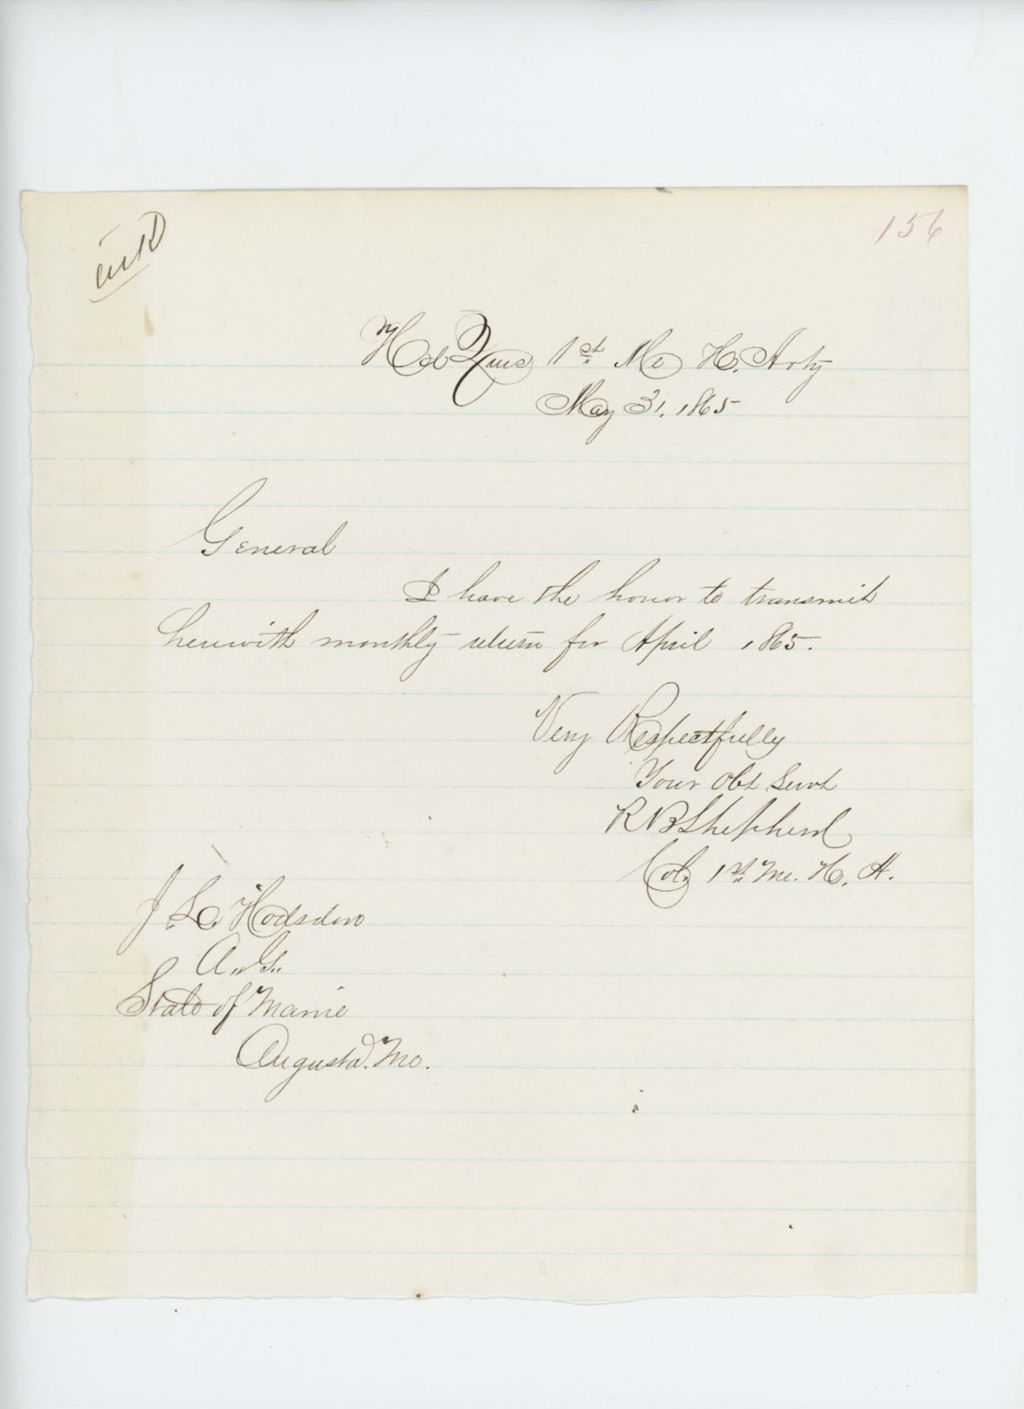 156
Hd Qurs 1st Me H. Arty
May 31, 1865
General
I have the honor to transmit
herewith monthly return for April 1865.
Very Respectfully
Your Obt Servt
R B Shepherd
Col, 1st Me. H. A.
J. L. Hodsdon
A.. G..
State of Maine
Augusta. Me.